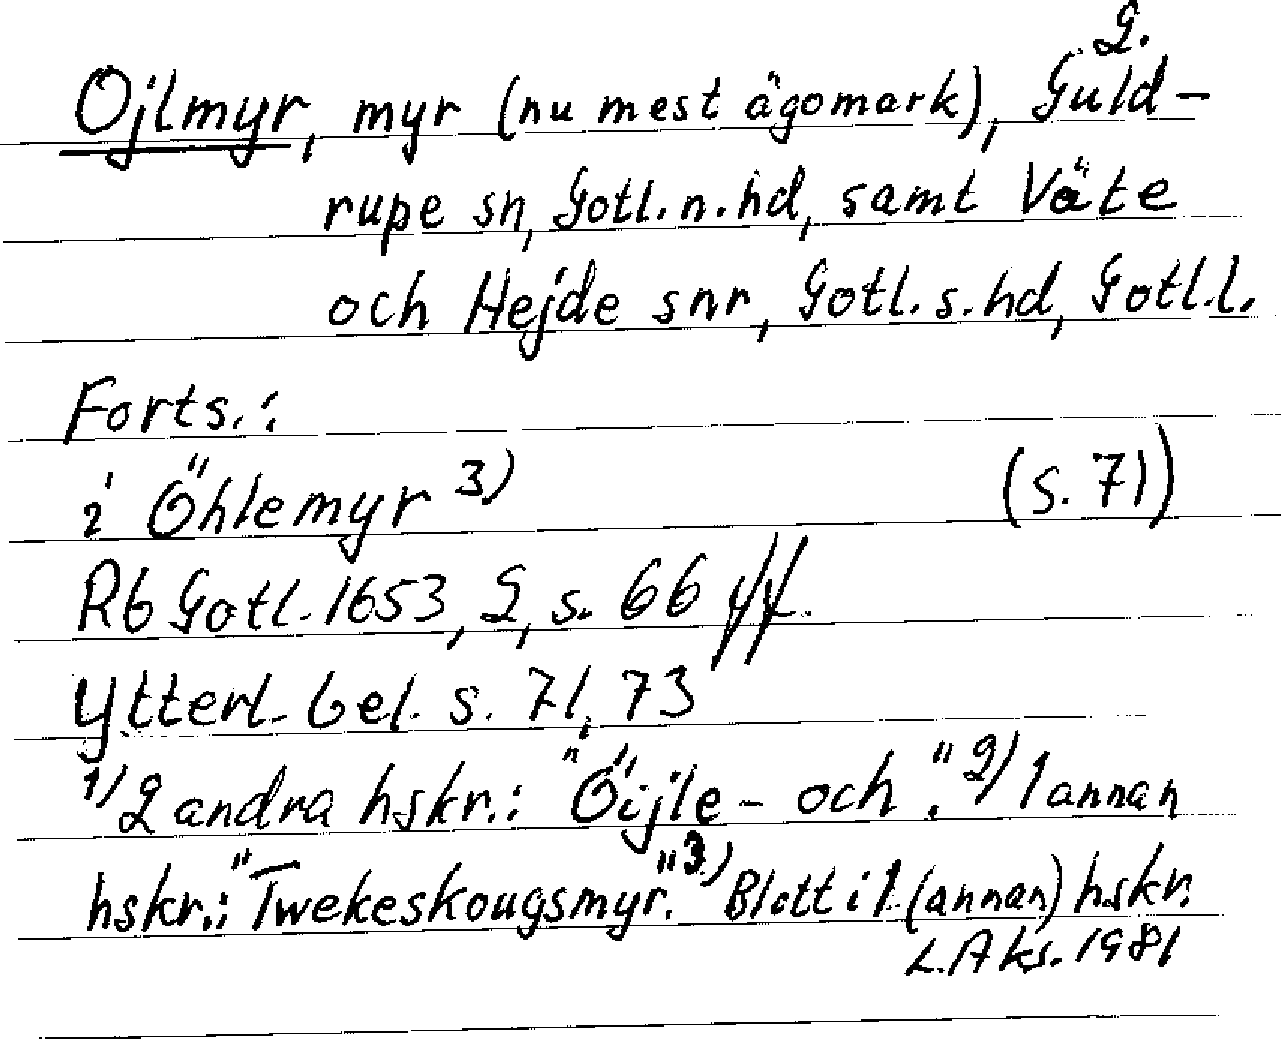 2.
Ojlmyr, myr (nu mest ägomark), Guld-
rupe sn, Gotl. n. hd, samt Väte
och Hejde snr, Gotl. s. hd, Gotl. l.
Forts.:
i Öhlemyr 3) (s. 71)
Rb Gotl. 1653, 2, s. 66 ff.
Ytterl. bel. s. 71, 73
1) 2 andra hskr.: "Öijle- och". 2) 1 annan
hskr.: "Twekeskougsmyr". 3) Blott i 1 (annan) hskr.
L. Aks. 1981